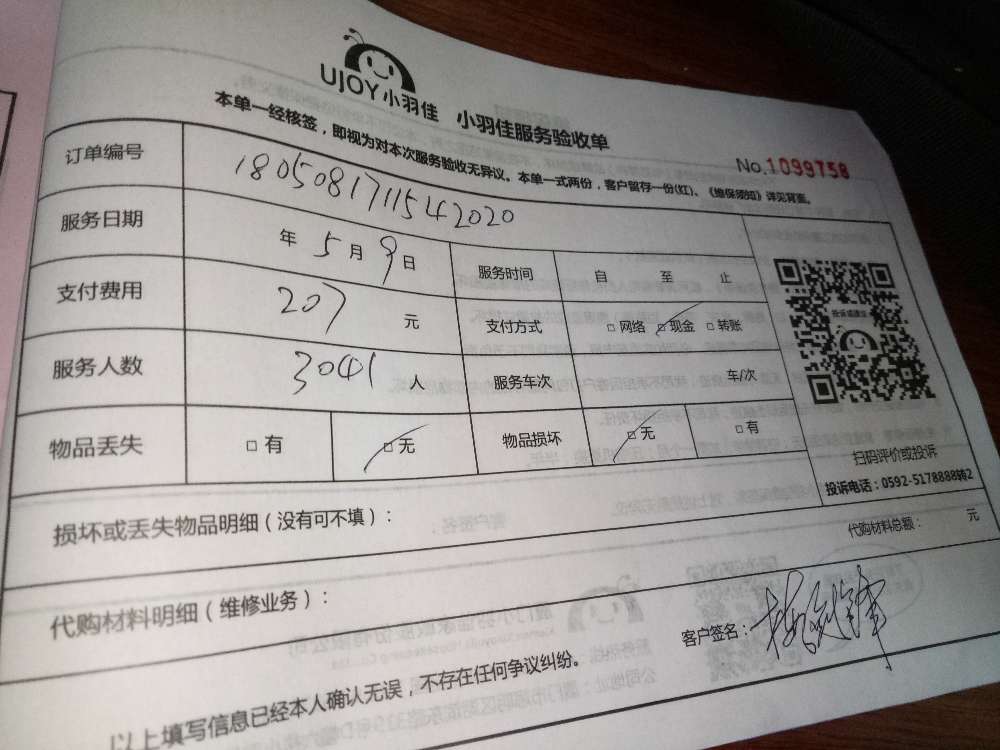 UJOY 小羽佳 小羽佳服务验收单
本单一经核签，即视为对本次服务验收无异议。本单一式两份，客户留存一份(红)、《维保须知》详见背面。
No.1099758
订单编号 180508171154 2020
服务日期 年 5月 9日 服务时间 自 至 止
支付费用 207 元 支付方式 □网络 □现金 □转账
服务人数 3041 人 服务车次 车/次
物品丢失 □有 □无 物品损坏 □无 □有
投诉或建议
扫码评价或投诉
投诉电话：0592-5178888转2
损坏或丢失物品明细（没有可不填）：
代购材料总额： 元
代购材料明细（维修业务）：
客户签名：
以上填写信息已经本人确认无误，不存在任何争议纠纷。